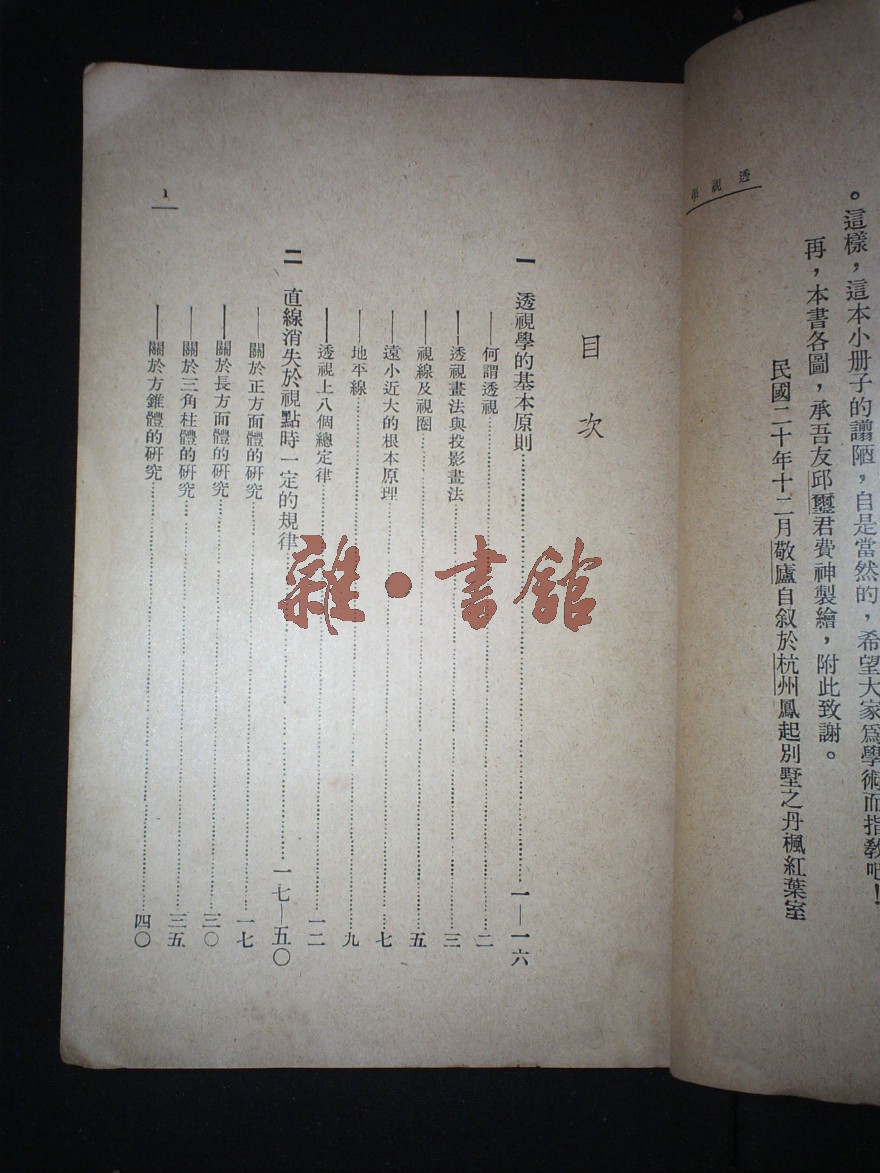 透視學
。這樣，這本小册子的譾陋，自是當然的，希望大家爲學術而指教吧！
再，本書各圖，承吾友邱璽君費神製繪，附此致謝。
民國二十年十二月敬廬自叙於杭州鳳起別墅之丹楓紅葉室
目次
一 透視學的基本原則……一—一六
——何謂透視……二
——透視畫法與投影畫法……三
——視線及視圈……五
——遠小近大的根本原理……七
——地平線……九
——透視上八個總定律……一二
二 直線消失於視點時一定的規律……一七—五〇
——關於正方面體的研究……一七
——關於長方面體的研究……三〇
——關於三角柱體的研究……三五
——關於方錐體的研究……四〇
1
雜·書館